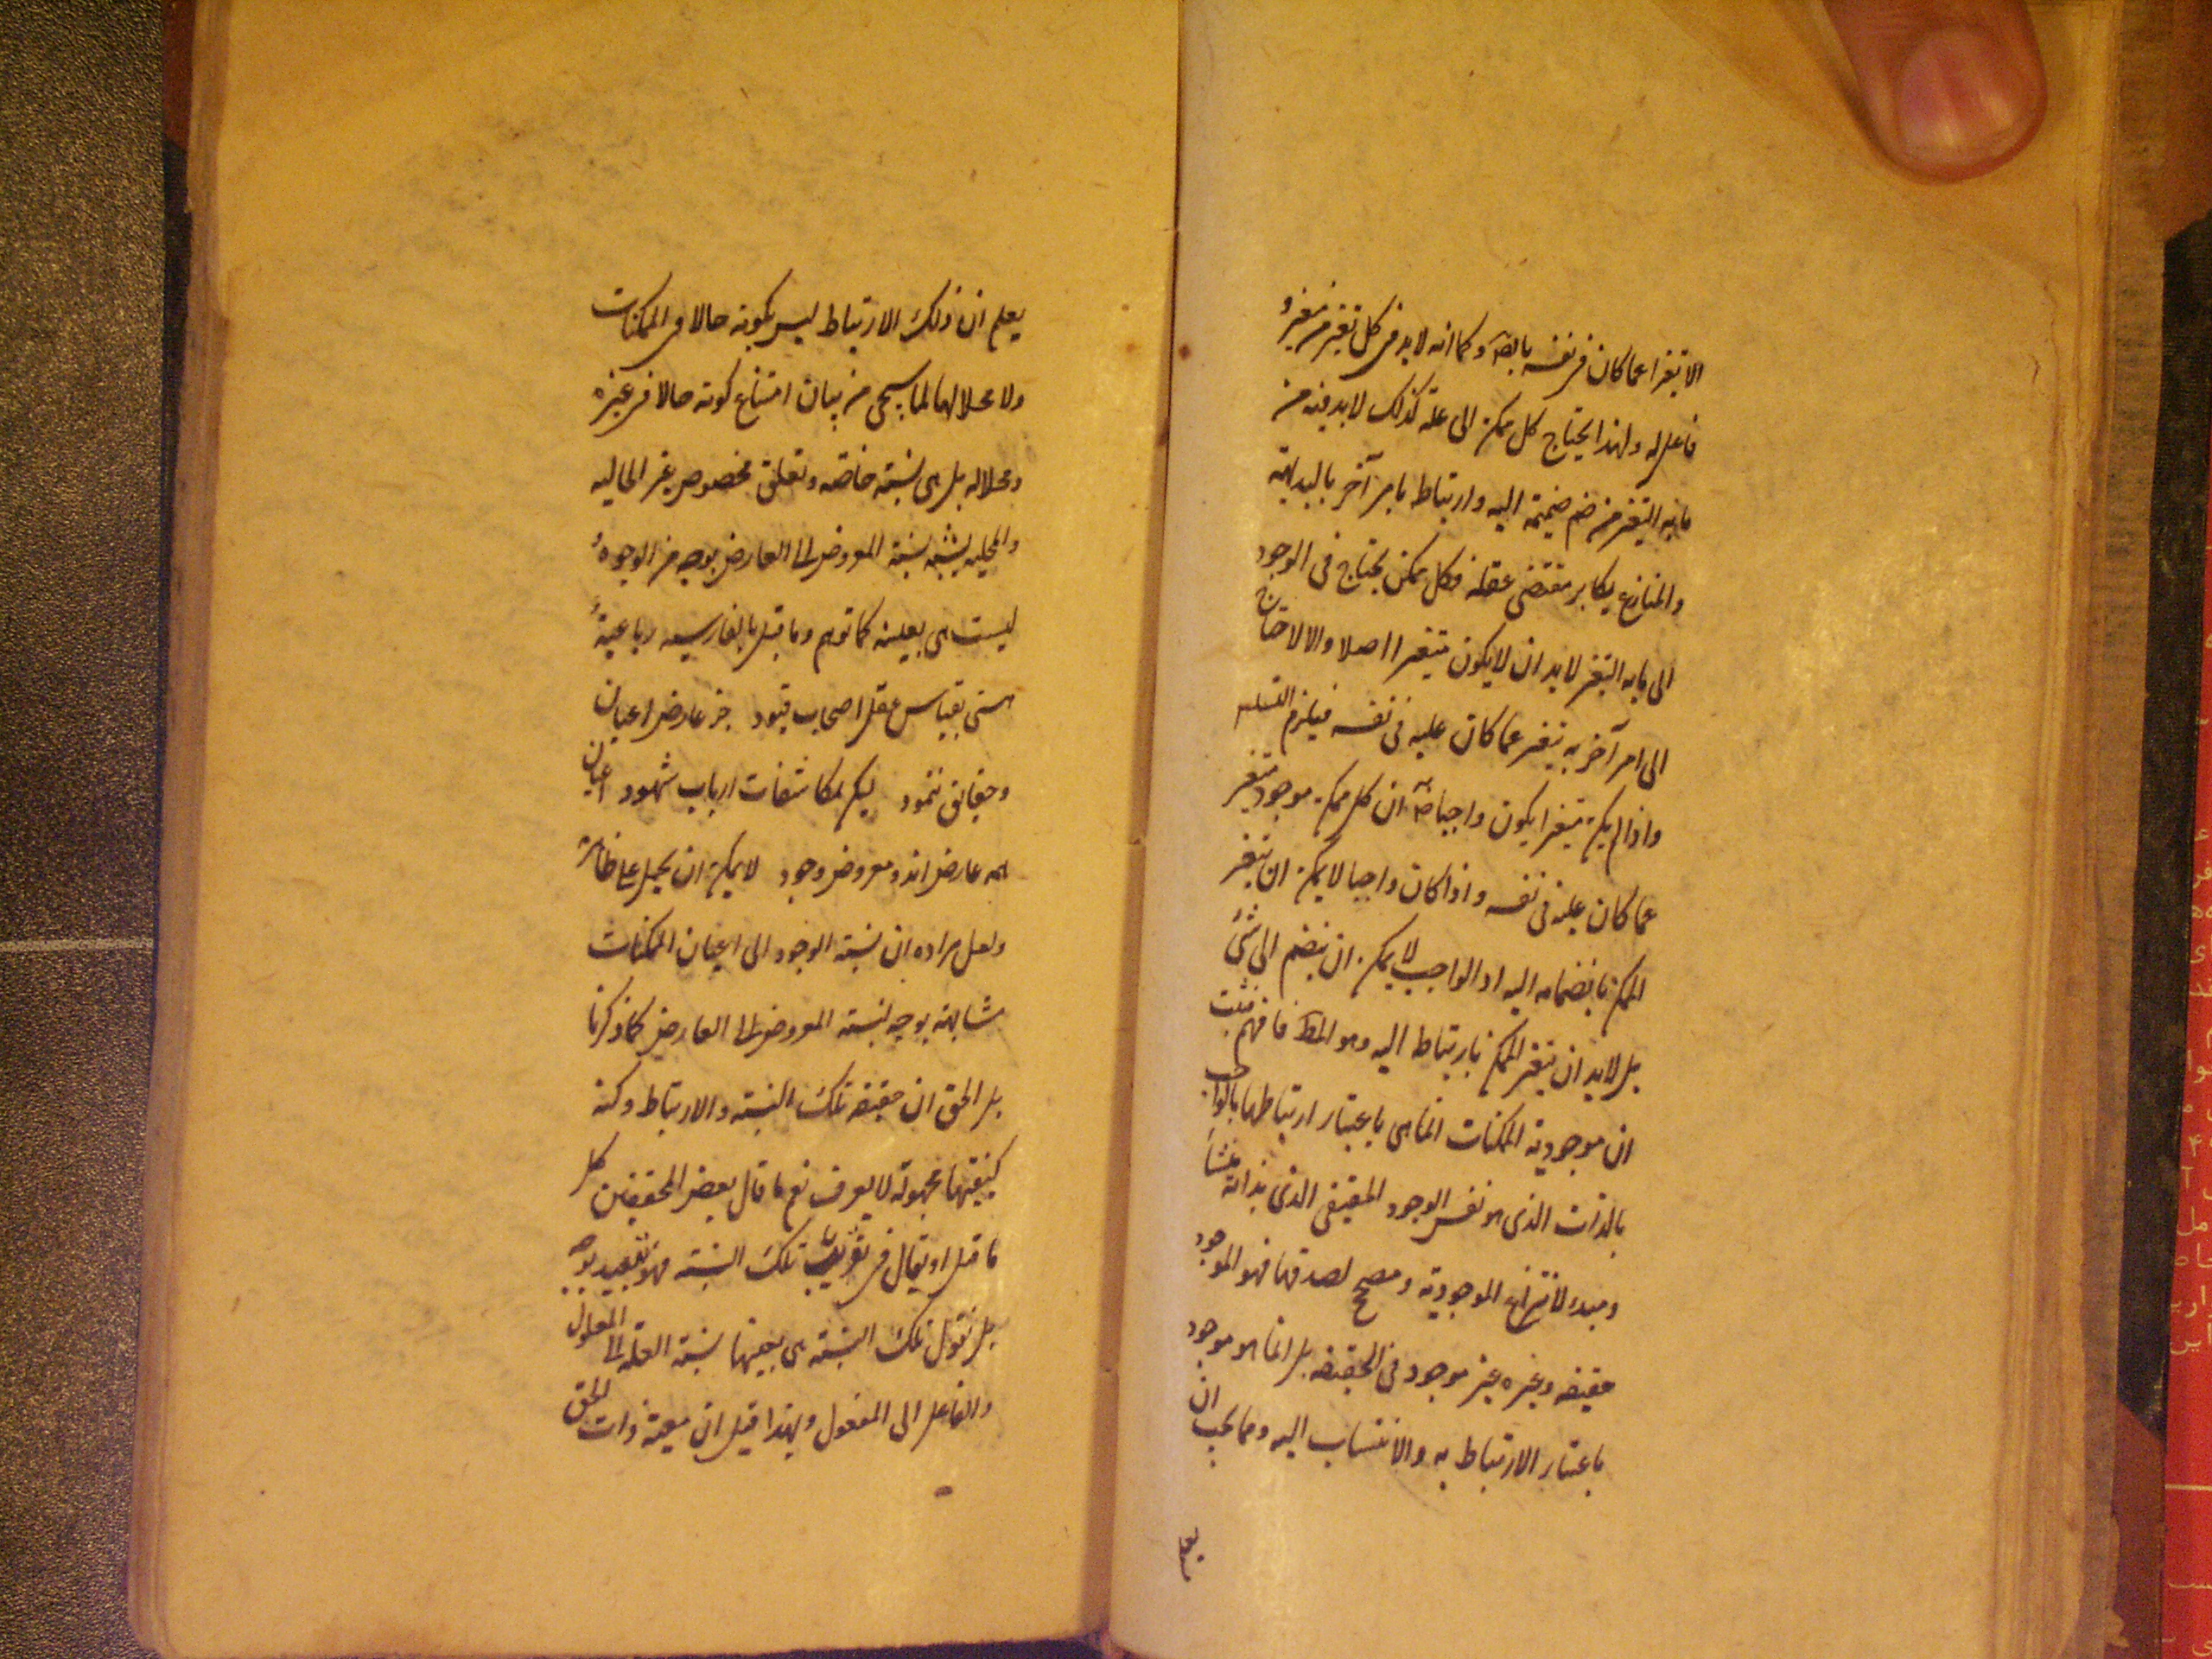 الا تغيرا عما كان فى نفسه بالضرورة وكما انه لابد فى كل تغير من مغير و
فاعل له ولهذا يحتاج كل ممكن الى علة كذلك لابد فيه من
ما به التغير من ضم ضميمة اليه وارتباط بامر آخر بالبديهة
والمنازع يكابر مقتضى عقله فكل ممكن يحتاج فى الوجود
الى ما به التغير لابد ان لا يكون متغيرا اصلا والا لاحتاج
الى امر آخر به يتغير عما كان عليه فى نفسه فيلزم التسلسل
واذا لم يكن متغيرا يكون واجبا ان كل ممكن موجود متغير
عما كان عليه فى نفسه واذا كان واجبا لا يمكن ان يتغير
الممكن بانضمامه اليه اذ الواجب لا يمكن ان ينضم الى شئ
بل لابد ان يتغير الممكن بارتباط اليه وهو المط فافهم فثبت
ان موجودية الممكنات انما هى باعتبار ارتباطها بالواجب
بالذات الذى هو نفس الوجود الحقيقى الذى بذاته منشأ
ومبدء لانتزاع الموجودية ومصحح لصدقها فهو الموجود
حقيقه وغيره غير موجود فى الحقيقه بل انما هو موجود
باعتبار الارتباط به والانتساب اليه ومما يجب ان
يعلم ان ذلك الارتباط ليس بكونه حالا فى الممكنات
ولا محلا لها لما سيجئ من بيان امتناع كونه حالا فى غيره
ومحلا له بل هى نسبته خاصه وتعلق مخصوص غير الحاليه
والمحليه يشبه نسبة المعروض الى العارض بوجه من الوجوه و
ليست هى بعينه كما توهم وما قيل بالفارسيه رباعية
هستى بقياس عقل اصحاب قيود جز عارض اعيان
وحقايق ننمود ليكن بمكاشفات ارباب شهود اعيان
همه عارض اند ومعروض وجود لا يمكن ان يحمل على ظاهره
ولعل مراده ان نسبته الوجود الى اعيان الممكنات
مشابهة بوجه لنسبته المعروض الى العارض كما ذكرنا
بل الحق ان حقيقه تلك النسبته والارتباط وكنه
كيفيتها مجهولة لا يعرف نعم ما قال بعض المحققين كل
ما قيل او يقال فى تقريب تلك النسبته فهو تبعيد بوجه
بل نقول تلك النسبته هى بعينها نسبته العله الى المعلول
والفاعل الى المفعول ولهذا قيل ان معية ذات الحق